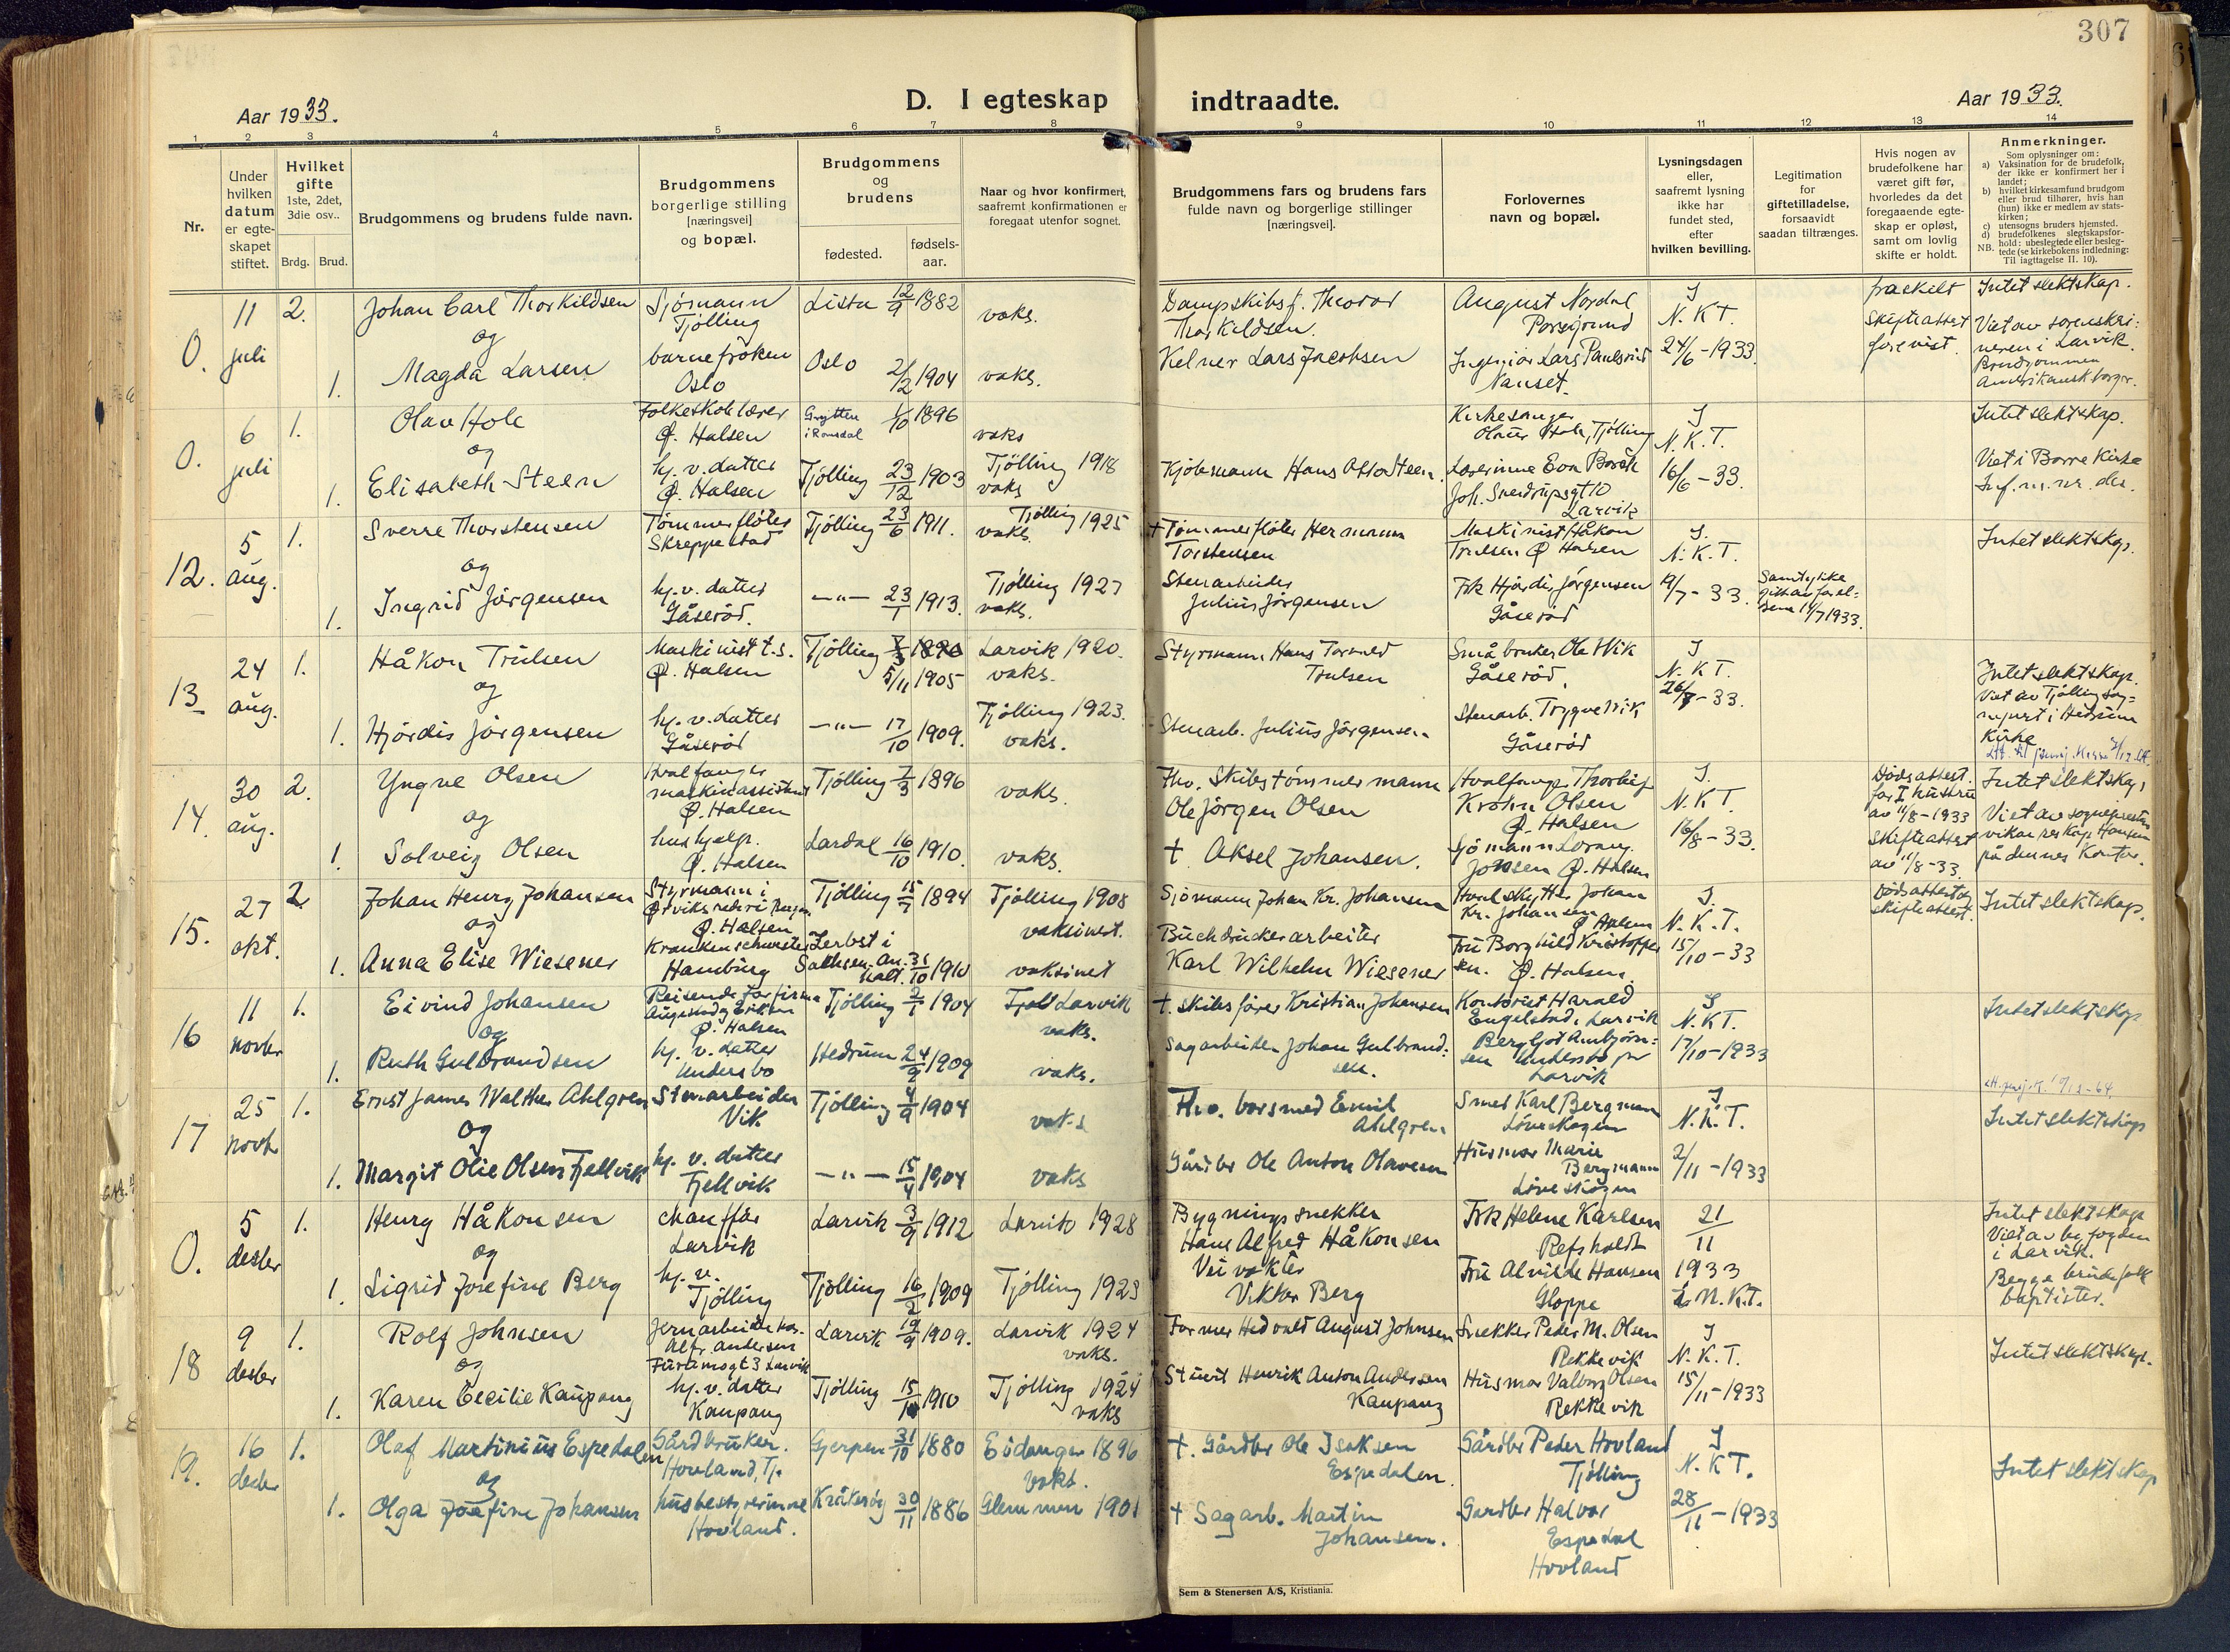 307
Aar 1933.
D. I egteskap
indtraadte.
Aar 1933.
1 2 3 4 5 6 7 8 9 10 11 12 13 14
Nr.
Under
hvilken
datum
er egte-
skapet
stiftet.
Hvilket
gifte
1ste, 2det,
3die osv..
Brdg. Brud.
Brudgommens og brudens fulde navn.
Brudgommens
borgerlige stilling
[næringsvei]
og bopæl.
Brudgommens
og
brudens
fødested.
fødsels-
aar.
Naar og hvor konfirmert,
saafremt konfirmationen er
foregaat utenfor sognet.
Brudgommens fars og brudens fars
fulde navn og borgerlige stillinger
[næringsvei].
Forlovernes
navn og bopæl.
Lysningsdagen
eller,
saafremt lysning
ikke har
fundet sted,
efter
hvilken bevilling.
Legitimation
for
giftetilladelse,
forsaavidt
saadan tiltrænges.
Hvis nogen av
brudefolkene har
været gift før,
hvorledes da det
foregaaende egte-
skap er opløst,
samt om lovlig
skifte er holdt.
Anmerkninger.
Som oplysninger om:
a) Vaksination for de brudefolk,
der ikke er konfirmert her i
landet;
b) hvilket kirkesamfund brudgom
eller brud tilhører, hvis han
(hun) ikke er medlem av stats-
kirken;
c) utensogns bruders hjemsted.
d) brudefolkenes slegtskapsfor-
hold: ubeslegtede eller besleg-
NB. tede (se kirkebokens indledning:
Til iagttagelse II. 10).
0. 11 juli 2.
Johan Carl Thorkildsen
og
1. Magda Larsen
Sjømann
Tjølling
barnefrøken
Oslo
Lista 12/9 1882
Oslo 2/2 1904
vaks.
vaks.
Dampskibsf. Theodor
Thorkildsen.
Kelner Lars Jacobsen
August Nordal
Porsgrund
Ingeniør Lars Paulsrud
Nanset.
I
N. K T.
24/6-1933.
fraskelt
Skifteattest
forevist.
Intet slektskap.
Viet av sorenskri:
veren i Larvik.
Brudgommen
amerikansk borger.
0. 6 juli 1.
Olav Hole
og
1. Elisabeth Steen
Folkeskolelærer
Ø. Halsen
hj. v. datter
Ø. Halsen
Grytten
i Romsdal 1/10 1896
Tjølling 23/12 1903
vaks
Tjølling 1918
vaks
Kjøbmann Hans Olsen Steen
Kirkesanger
Olaus Hole, Tjølling
Lærerinne Eva Borch
Joh. Sverdrupsgt 10
Larvik
I
N. K. T.
16/6-33.
Intet slektskap.
Viet i Borre Kirke
12. 5 aug. 1.
Sverre Thorstensen
og
1. Ingrid Jørgensen
Tømmerfløter
Skreppestad
hj. v. datter
Gåserød.
Tjølling 23/6 1911.
—"— 23/1 1913.
Tjølling 1925
vaks.
Tjølling 1927
vaks.
+ Tømmerfløter Hermann
Torstensen
Stenarbeider
Julius Jørgensen
Maskinist Håkon
Trulsen Ø Halsen
Frk Hjørdis Jørgensen
Gåserød
I.
N. K. T.
19/7-33.
Samtykke
gitt av forel-
drene 11/7 1933.
Intet slektskap.
13 24 aug. 1.
Håkon Trulsen
og
1. Hjørdis Jørgensen
Maskinist t.s.
Ø. Halsen
hj. v. datter
Gåserød
Tjølling 5/11 1905
—"— 17/10 1909.
Larvik 1920.
vaks.
Tjølling 1923.
vaks.
Styrmann Hans Torvald
Trulsen
Stenarb. Julius Jørgensen
Småbruker Ole Wik
Gåserød,
Stenarb. Trygve Wik
Gåserød
I
N. K T.
26/7-33.
Intet slektskap.
Viet av Tjølling sog-
neprest i Hedrum
Kirke
14. 30 aug. 2.
Yngve Olsen
og
1. Solveig Olsen
Hvalfanger
maskinassistent
Ø. Halsen
hushjelp.
Ø. Halsen
Tjølling 7/3 1896
Lardal 16/10 1910.
vaks.
vaks.
Fhv. Skibstømmermann
Ole Jörgen Olsen
+ Aksel Johansen.
Hvalfang. Thorleif
Krohn Olsen
Ø. Halsen
Sjømann Lorang
Jonsen Ø. Halsen
I.
N. K T
16/8-33.
Dødsattest.
for I hustru
av 11/8-1933
Skifteattest
av 11/8-33.
Intet slektskap
Viet av sogneprestens
vikar res.kap. Hansen
på dennes Kontor.
15. 27 okt. 2
Johan Henry Johansen
og
1. Anna Elise Wiesener
Styrmann i
Ø. Halsen
Krankenschwester
Hamburg
Tjølling 15/7 1894
Zerbst i
Sachsen-An.
halt. 31/10 1910
Tjølling 1908
vaksinert.
vaksinert
Sjømann Johan Kr. Johansen
Buchdruckerarbeiter
Karl Wilhelm Wiesener
Hvalskytter Johan
Kr. Johansen
Ø Halsen
Fru Borghild Kristoffer
sen. Ø. Halsen
I.
N. K. T.
15/10-33
Dødsattest og
skifteattest.
Intet slektskap.
16 11 novbr 1.
Eivind Johansen
og
1. Ruth Gulbrandsen
Reisende for firma
Ø. Halsen
hj. v. datter
Undersbo
Tjølling 2/1 1904
Hedrum 24/9 1909
Larvik
vaks.
vaks.
+ Skibsfører Kristian Johansen
Sagarbeider Johan Gulbrand:
sen.
Kontorist Harald
Engelstad, Larvik
Bergljot Arnbjörn:
sen Undersbo pr
Larvik
I
N. K T.
17/10-1933
Intet slektskap
17 25 novb 1.
Ernst James Walther Ahlgren
og
1. Margit Olie Olsen Fjellvik
Stenarbeider
Vik
hj. v. datter
Fjellvik
Tjølling 4/9 1904
—"— 15/4 1904
vaks
vaks
Fhv. borsmed Emil
Ahlgren
Gårdbr Ole Anton Olavesen
Smed Karl Bergmann
Løveskogen
Husmor Marie
Bergmann
Løveskogen
I
N. K. T.
2/11-1933
Intet slektskap
0. 5 desbr 1.
Henry Håkonsen
og
1. Sigrid Josefine Berg
chauffør
Larvik
hj. v.
Tjølling
Larvik 3/9 1912
Tjølling 16/2 1909
Larvik 1928
Tjølling 1923
Bygningssnekker
Hans Alfred Håkonsen
Veivokter
Viktor Berg
Frk Helene Karlsen
Refsholdt
Fru Alvilde Hansen
Gloppe
21/11
1933
i N. K.T.
Intet slektskap
Viet av byfogden
i Larvik.
Begge brudefolk
baptister.
18 9 desbr 1.
Rolf Johnsen
og
1. Karen Cecilie Kaupang
Jernarbeider hos.
Alfr. Andersen
Furumogt 3 Larvik
hj. v. datter
Kaupang
Larvik 19/9 1909.
Tjølling 15/10 1910
Larvik 1924
vaks.
Tjølling 1924
vaks
Former Hedvald August Johnsen
Stuert Henrik Anton Andersen
Kaupang
Snekker Peder M. Olsen
Rekkevik
Husmor Valborg Olsen
Rekkevik
I
N. K. T.
15/11-1933
Intet slektskap.
19. 16 desbr 1.
Olaf Martinius Espedalen
og
1. Olga Josefine Johansen
Gårdbruker.
Hovland, Tj.
husbestyrerinne
Hovland.
Gjerpen 31/10 1880
Kråkerøy 30/11 1886
Eidanger 1896
vaks.
Glemmen 1901
+. Gårdbr Ole Isaksen
Espedalen.
+ Sagarb. Martin
Johansen.
Gårdbr Peder Hovland
Tjølling
Gardbr Halvor
Espedal
Hovland
I
N. K T.
28/11-1933
Intet slektskap
Sem & Stenersen A/S, Kristiania.